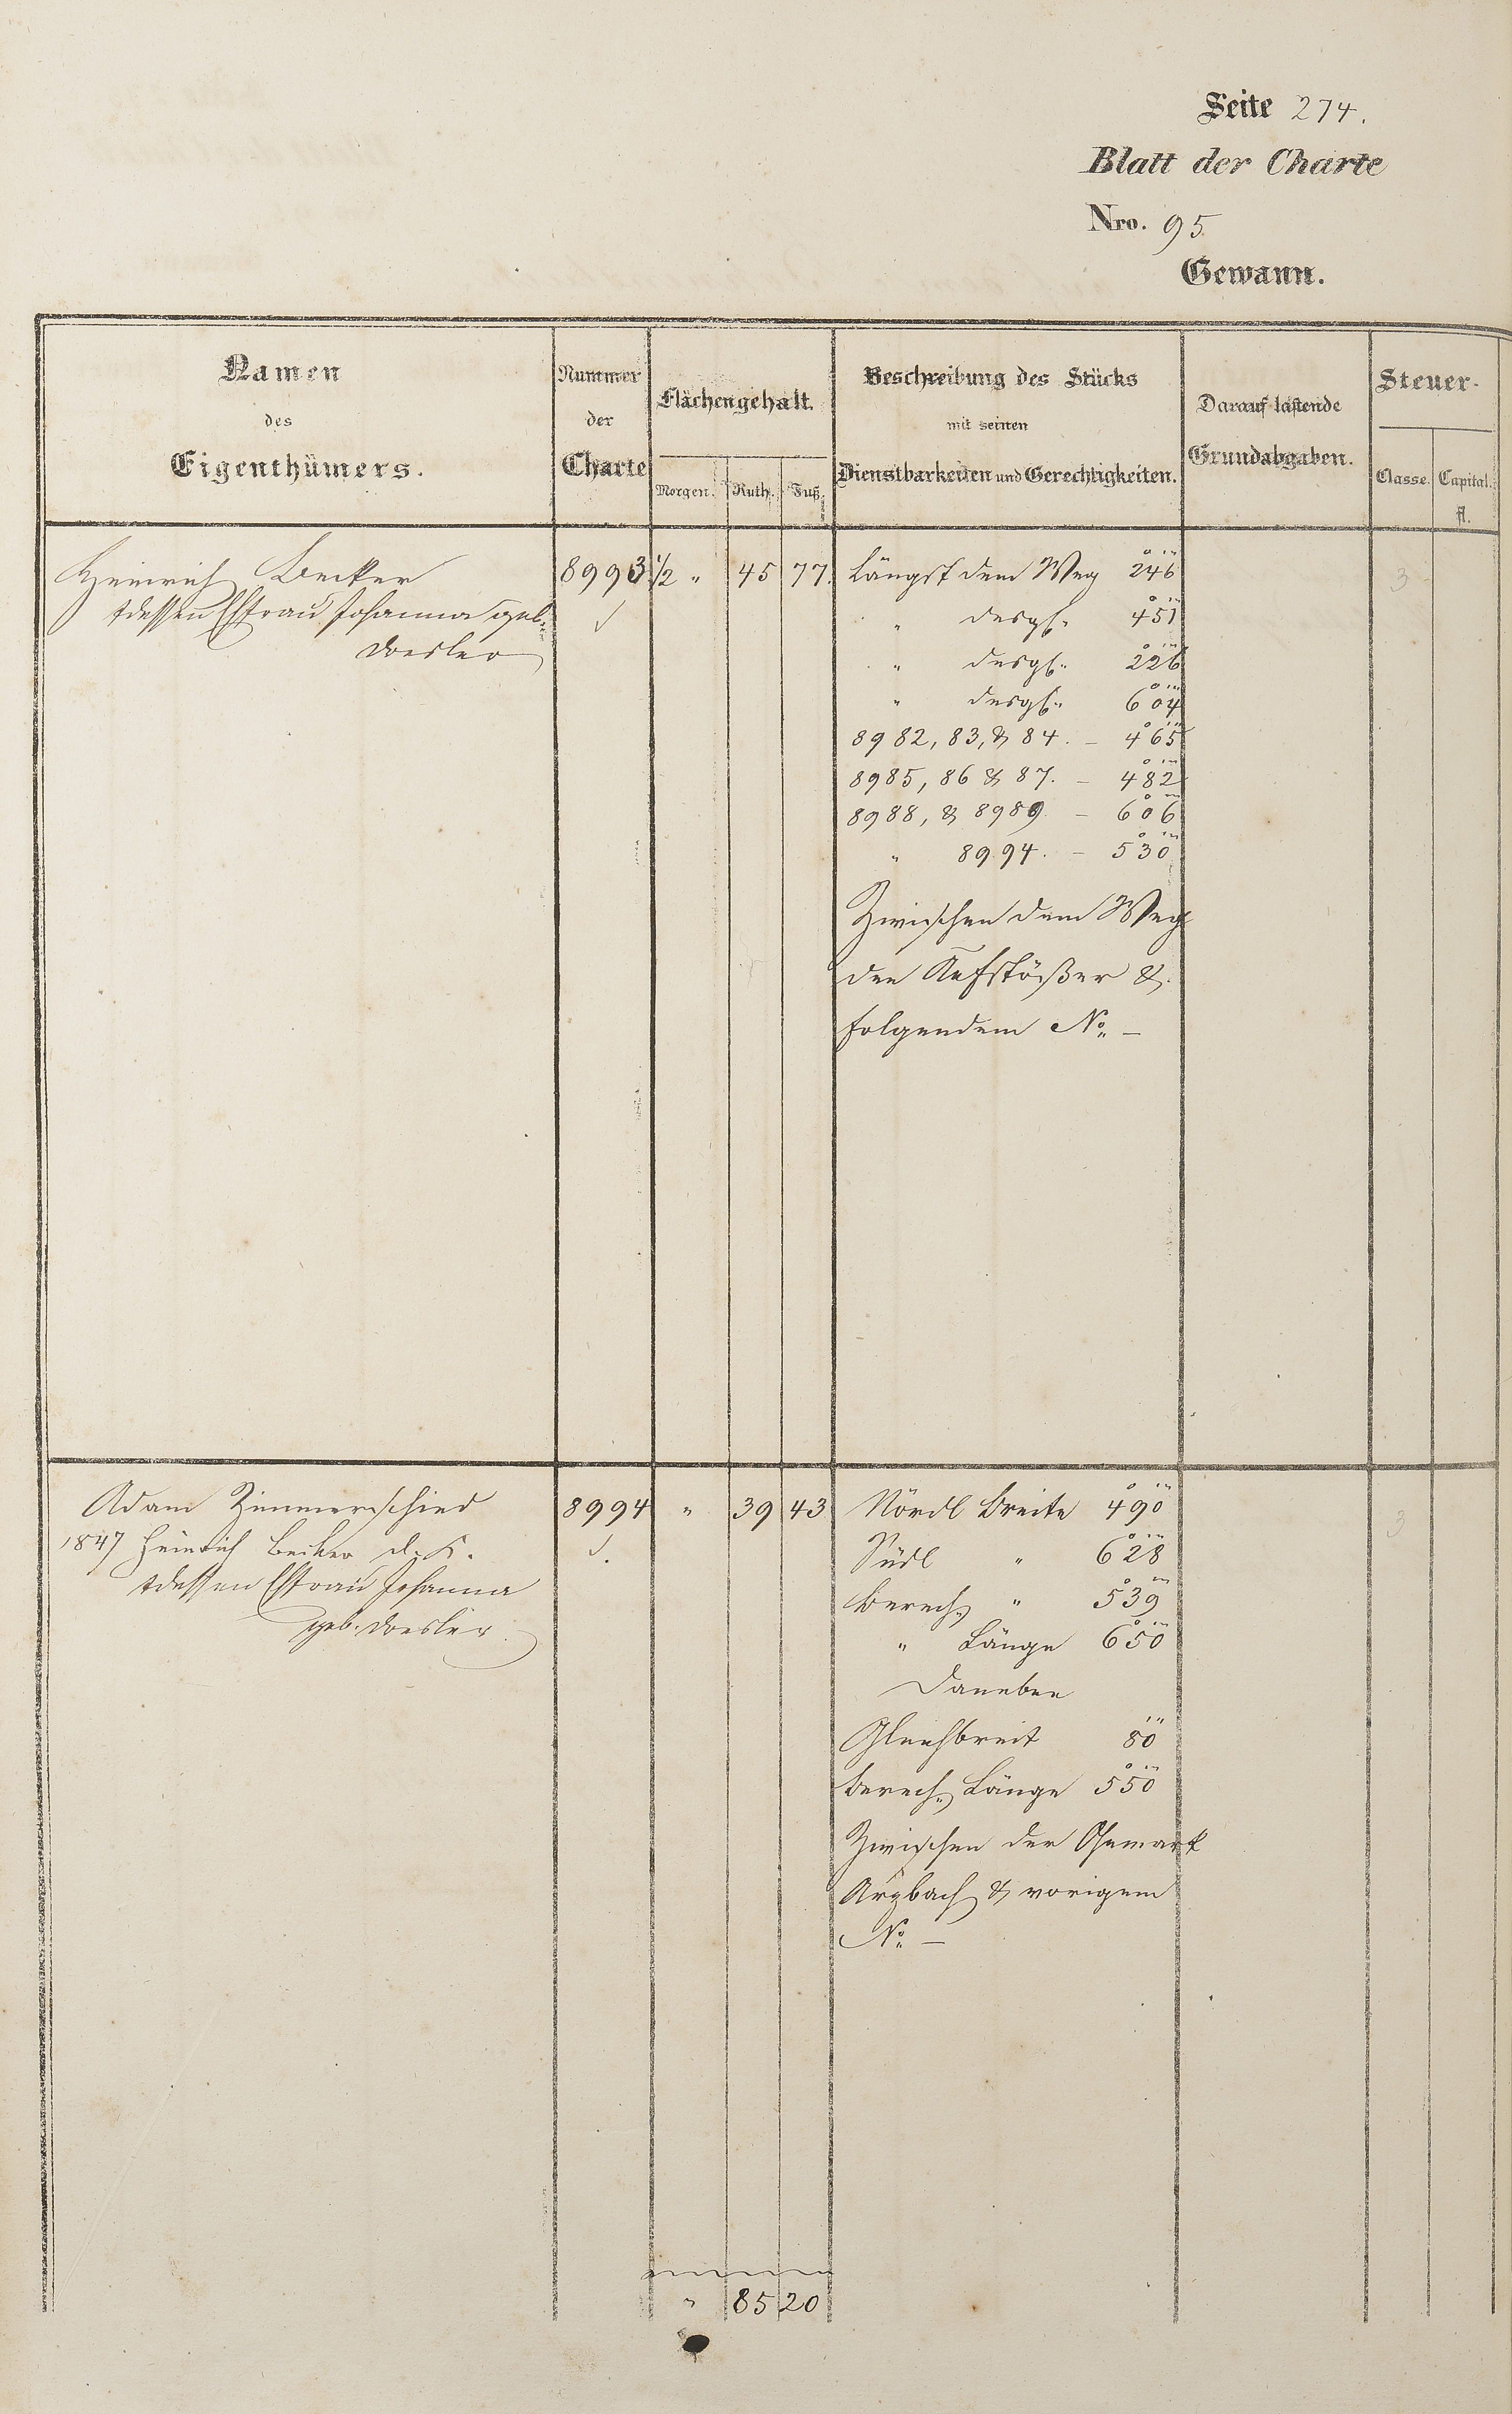 Seite 274.
Blatt der Charte
Nro. 95
Gewann.
Namen des Eigenthümers.
Nummer der Charte
Flächengehalt.
Morgen. Ruth. Fuß.
Beschreibung des Stücks mit seinen Dienstbarkeiten und Gerechtigkeiten.
Darauf lastende Grundabgaben.
Steuer-
Classe. Capital. fl.
Heinrich Becker 8993 1/2 " 45 77. Längst dem Weg 246 3
dessen Ehfrau Johanna geb. " desgl. 451
" desgl. 226
" desgl. 604
8982, 83, & 84. – 465
8985, 86 & 87. – 482
8988, & 8989 – 606
" 8994. – 530
Zwischen dem Weg
den Aufstößer &
folgendem No. –
Adam Zimmerschied 8994 " 39 43 Nördl Breite 490 3
1847 Heinrich Becker d. K. Südl " 628
dessen Ehfrau Johanna Berech. " 539
geb. " Länge 650
Daneben
Gleichbreit 80
Berech. Länge 550
Zwischen der Gemark
Arzbach & vorigem
No. –
" 85 20